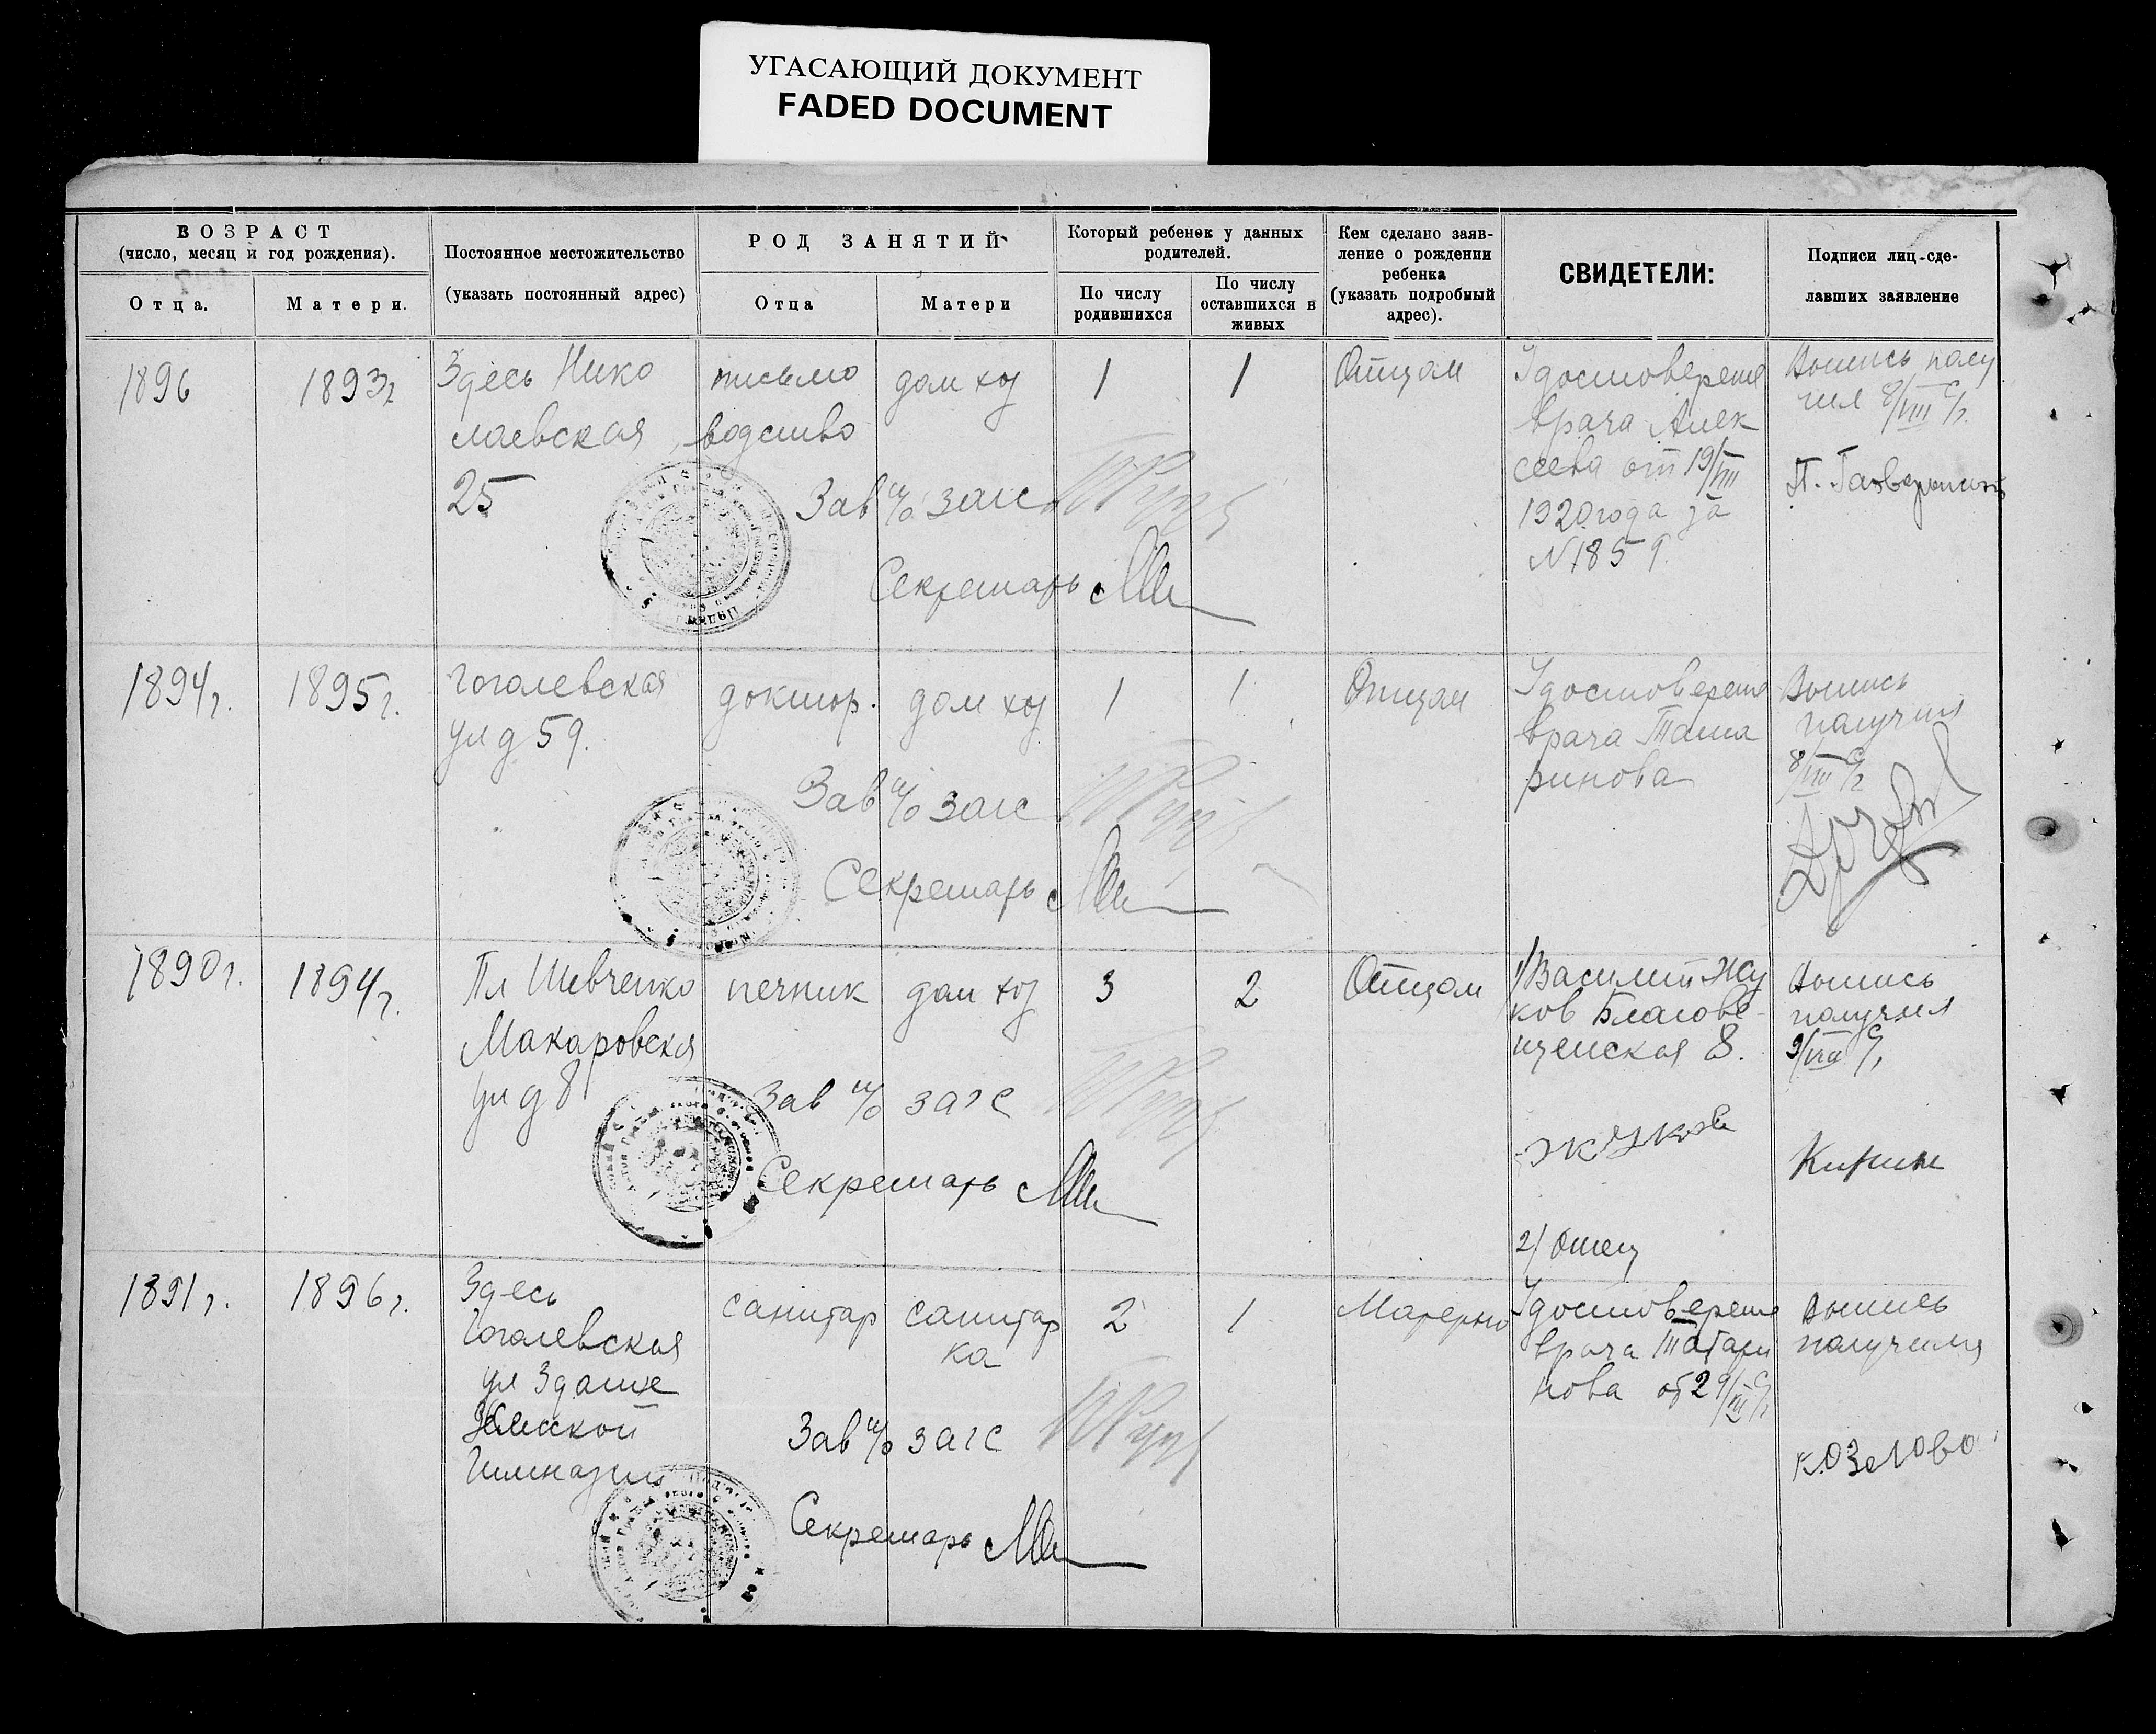 УГАСАЮЩИЙ ДОКУМЕНТ
FADED DOCUMENT
ВОЗРАСТ
(число, месяц и год рождения).
Отца.
Матери.
Постоянное местожительство
(указать постоянный адрес)
РОД ЗАНЯТИЙ
Отца
Матери
Который ребенок у данных
родителей.
По числу
родившихся
По числу
оставшихся в
живых
Кем сделано заяв-
ление о рождении
ребенка
(указать подробный
адрес).
СВИДЕТЕЛИ:
Подписи лиц-сде-
лавших заявление
1896
1893г
Здесь Нико
лаевская
25
письмо
водство
дом хоз
1
1
Отцом
Удостоверение
врача Алек
сеева от 19/VIII
1920 года за
N 1859
Выпись полу
чил 8/VIII с/г.
Зав п/о загс
Секретарь
1894г.
1895г.
Гоголевская
ул д 59.
доктор.
дом хоз
1
1
Отцом
Удостоверение
врача Тата
ринова
Выпись
получил
8/VIII с/г
Зав п/о загс
Секретарь
1890г.
1894г.
Пл Шевченко
Макаровская
ул д 8
печник
дом хоз
3
2
Отцом
1/ Василий Жу
ков Благове-
щенская 8.
Жуков
2/ Отец
Выпись
получил
9/VIII с/г
Зав п/о загс
Секретарь
1891г.
1896г.
Здесь
Гоголевская
ул Здание
Женской
Гимназии
санитар
санитар
ка
2
1
Матерью
Удостоверение
врача Татари
нова от 29/VII с/г
Выпись
получила
Козелова
Зав п/о загс
Секретарь